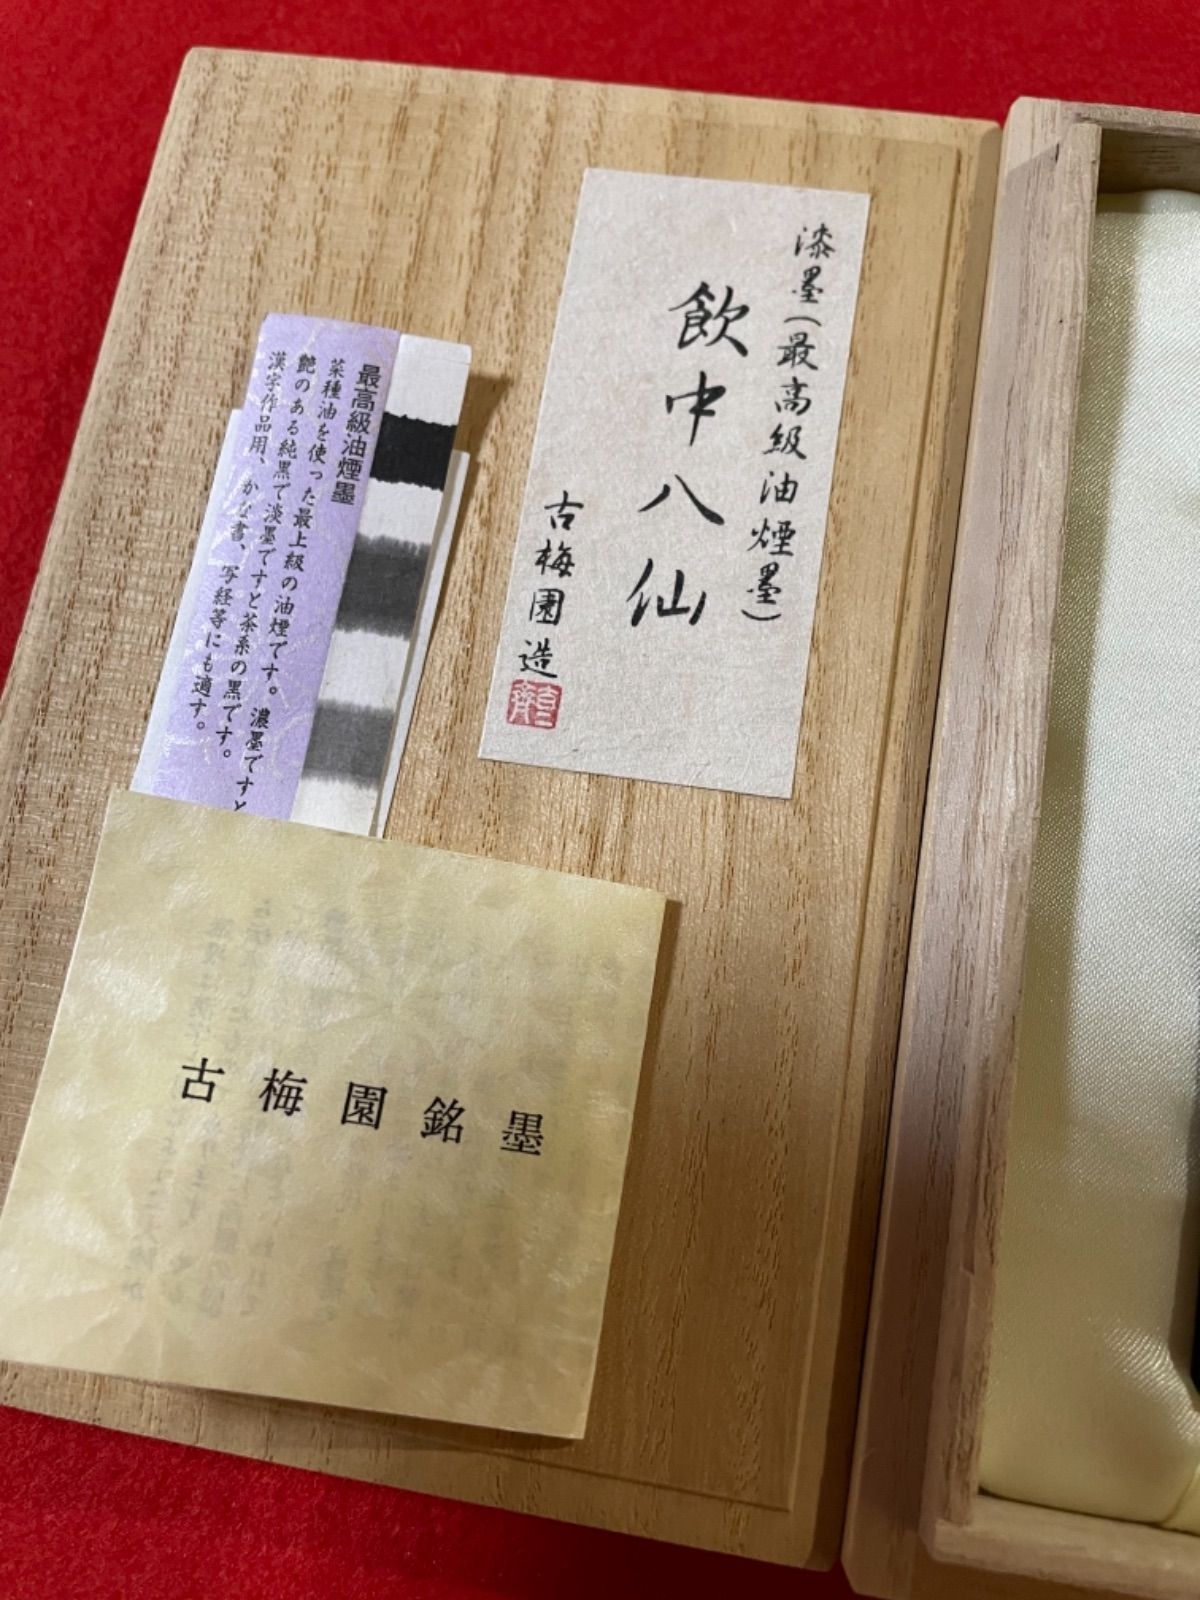 漆墨(最高級油煙墨)
飲中八仙
古梅園造
最高級油煙墨
菜種油を使った最上級の油煙です。濃墨ですと
艶のある純黒で淡墨ですと茶系の黒です。
漢字作品用、かな書、写経等にも適す。
古梅園銘墨